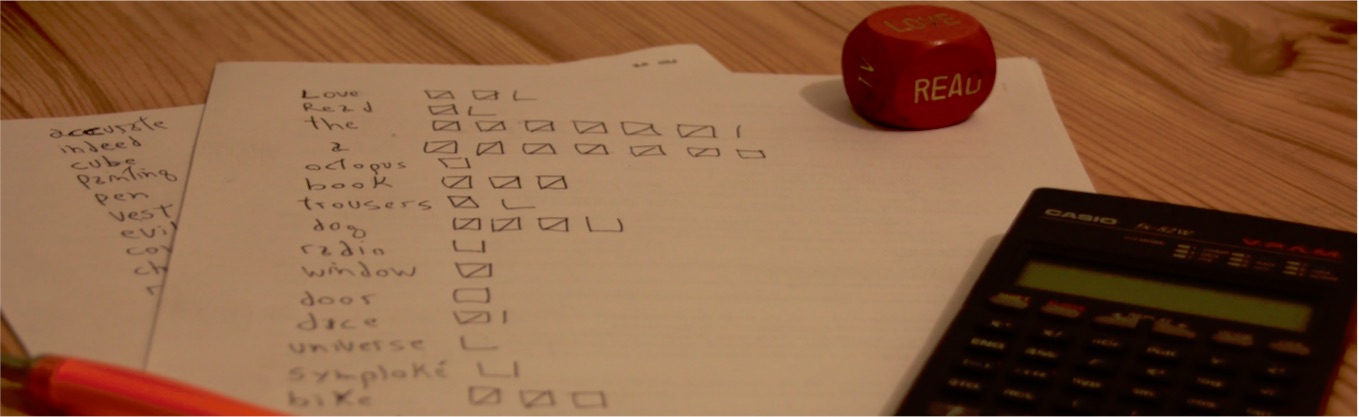 accurate
indeed
cube
painting
pen
vest
evil
Love
Read
the
a
octopus
book
trousers
dog
radio
window
door
dice
universe
symploké
bike
LOVE
READ
CASIO
fx-82W
V.P.A.M.